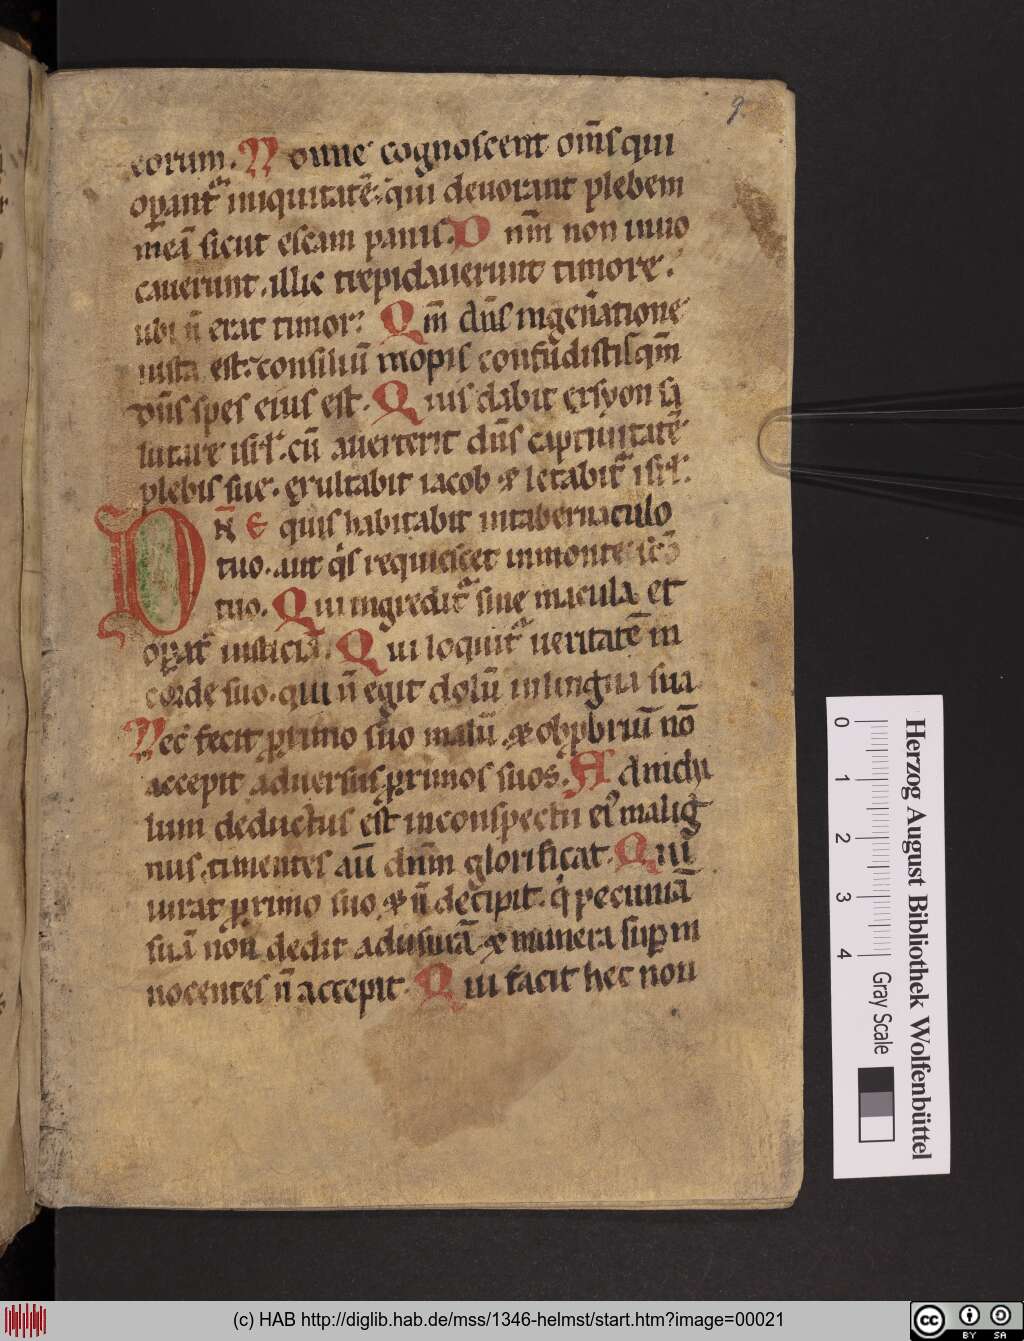 9
eorum. Nonne cognoscent om̄s qui
operant᷑ iniquitatē. qui deuorant plebem
meā sicut escam panis. Dnm̄ non inuo
cauerunt. illic trepidauerunt timore.
ubi n̄ erat timor. Qm̄ dn̄s in gen̄atione
iusta est. consiliū inopis confudistis qm̄
dn̄s spes eius est. Quis dabit ex syon sa
lutare isrl̄. cū auerterit dn̄s captiuitatē
plebis sue. exultabit iacob & letabit᷑ isrl̄.
Dn̄e quis habitabit in tabernaculo
tuo. aut qͥs requiescet in monte scō
tuo. Qui ingredit᷑ sine macula et
operat᷑ iusticiā. Qui loquit᷑ ueritatē in
corde suo. qui n̄ egit dolū in lingua sua
Nec fecit pͬximo suo malū. & obpbriū nō
accepit aduersus pͬximos suos. Ad nichi
lum deductus est in conspectu eiꝰ malig
nus. timentes aū dnm̄ glorificat. Qui
iurat pͬximo suo & n̄ decipit. qͥ pecuniā
suā non dedit ad usurā & munera sup in
nocentes n̄ accepit. Qui facit hec non
Herzog August Bibliothek Wolfenbüttel
0 1 2 3 4
Gray Scale
(c) HAB http://diglib.hab.de/mss/1346-helmst/start.htm?image=00021
cc BY SA